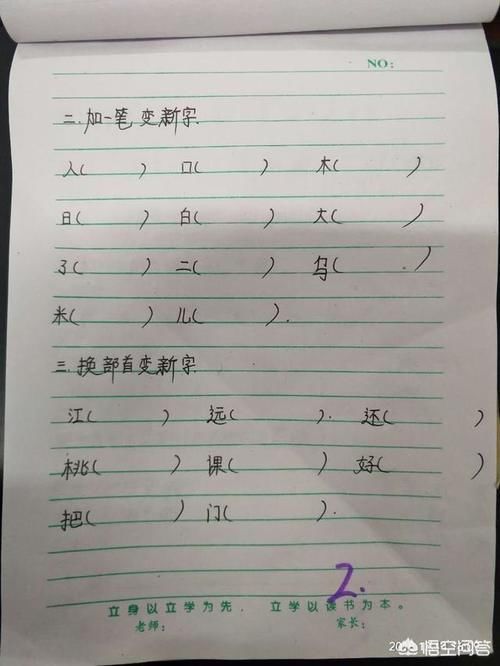 NO:
二.加一笔变新字.
人( ) 口( ) 木( )
日( ) 白( ) 大( )
了( ) 二( ) 乌( )
米( ) 儿( ).
三.换部首变新字
江( ) 远( ). 还( )
桃( ) 课( ) 好( )
把( ) 门( ).
2.
立身以立学为先， 立学以读书为本。
老师： 家长：
悟空问答